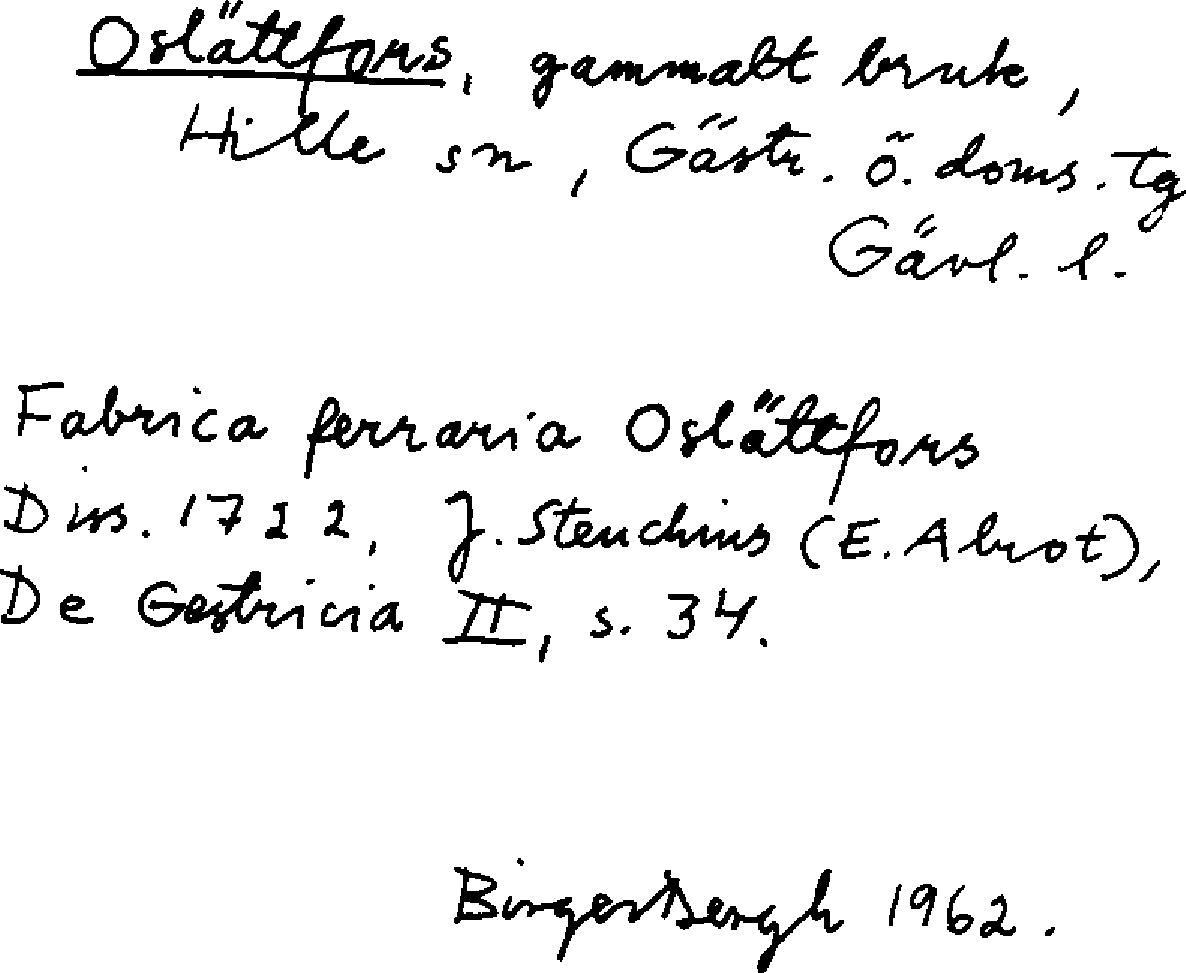 Oslättfors, gammalt bruk,
Hille sn, Gästr. ö. doms. tg
Gävl. l.
Fabrica ferraria Oslättfors
Diss. 1722, J. Steuchius (E. Abrot),
De Gestricia II, s. 34.
Birger Bergh 1962.